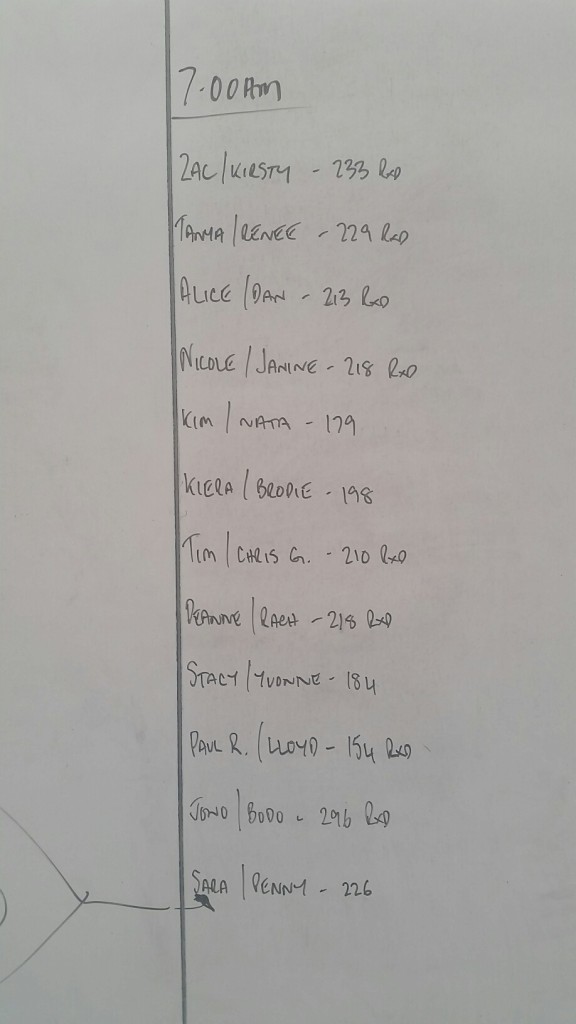 7.00AM
ZAC/KIRSTY - 233 RxD
TANYA/RENEE - 229 RxD
ALICE/DAN - 213 RxD
NICOLE/JANINE - 218 RxD
KIM/NATA - 179
KIERA/BRODIE - 198
TIM/CHRIS G. - 210 RxD
DEANNE/RACH - 218 RxD
STACY/YVONNE - 184
PAUL R./LLOYD - 154 RxD
JONO/BODO - 296 RxD
SARA/PENNY - 226